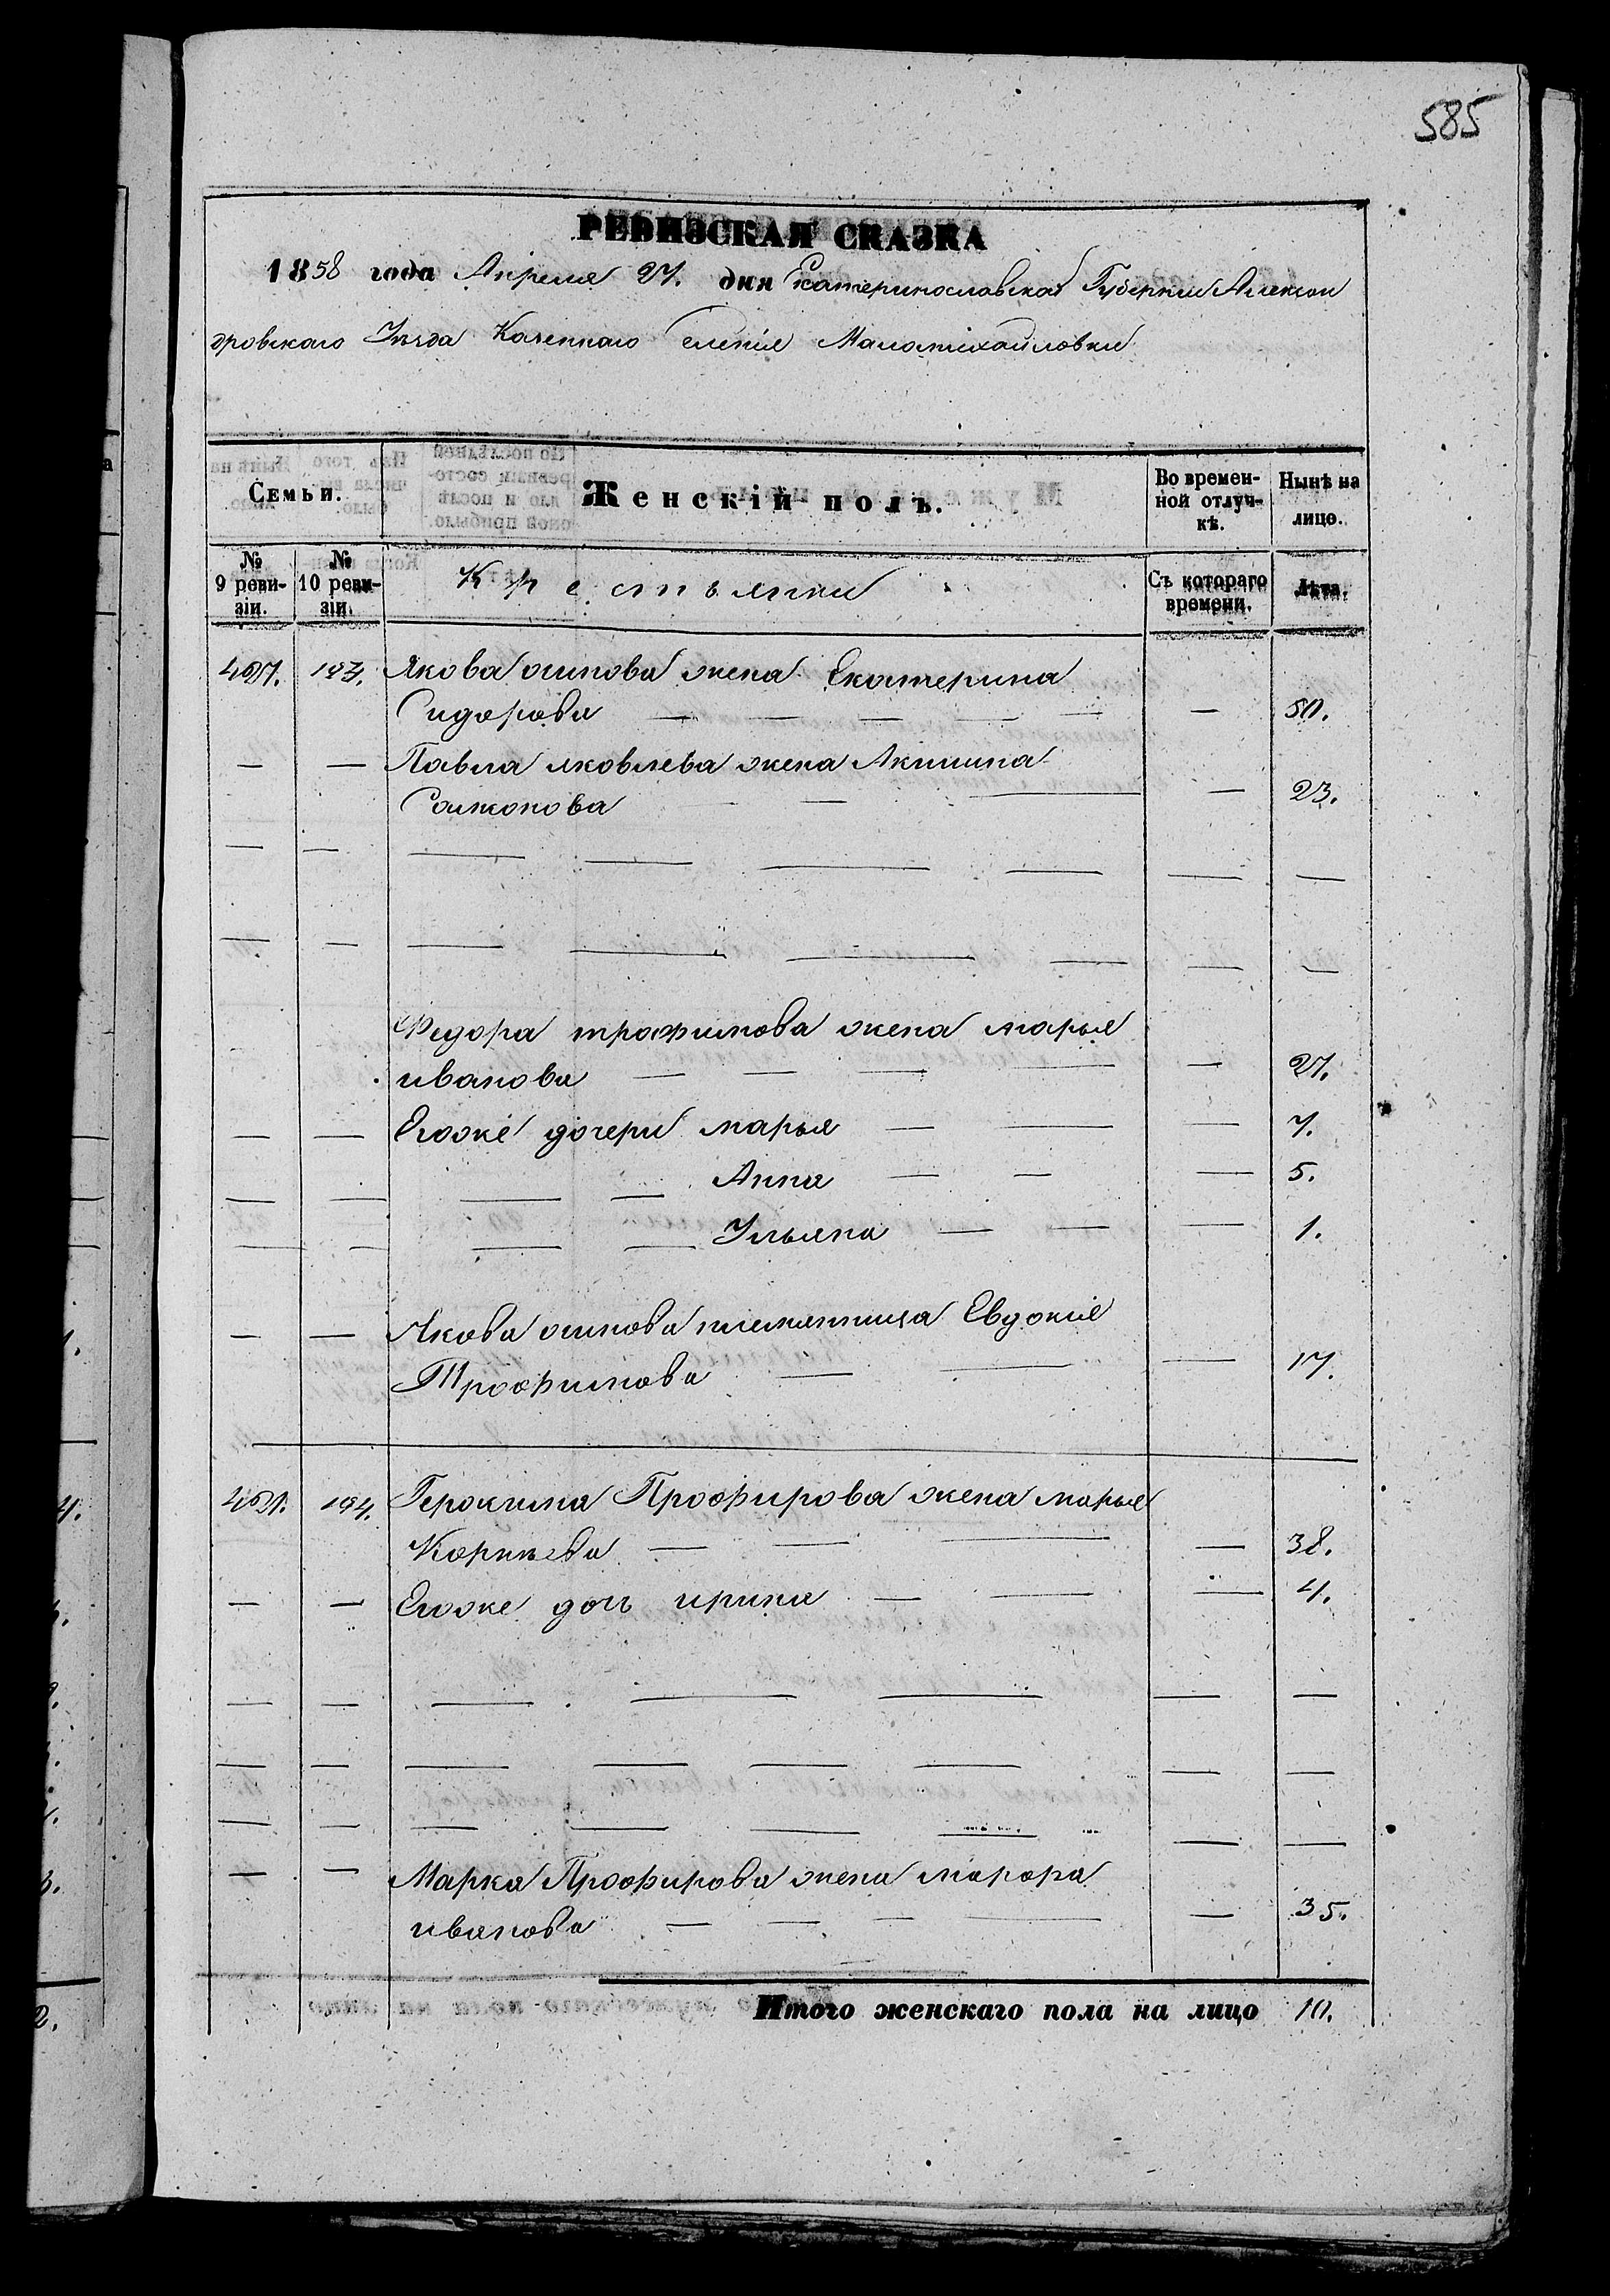 585
РЕВИЗСКАЯ СКАЗКА
1858 года Апреля 27. дня Екатеринославской Губернии Алексан
дровскаго Уѣзда Казеннаго селенія Маломихайловки
Семьи. Женскій полъ. Во времен-
ной отлуч-
кѣ. Нынѣ на
лицо.
№
9 реви-
зіи. №
10 реви-
зіи. Крестьянки Съ котораго
времени. Лѣта.
193. Якова осипова жена Екатерина
Сидорова — — — — — — 50.
— — Павла яковлева жена Акилина
Самонова — — — — 23.
— — — — — — — —
— — — — — — — —
Федора трофимова жена марья
иванова — — — — — 27.
— — Егоже дочери марья — — — 7.
— — — — Анна — — — 5.
— — — — Ульяна — — — 1.
— — Якова осипова племянница Евдокия
Трофимова — — — 17.
194. Профирова жена марья
Корнѣева — — — — 38.
— — Егоже дочь ирина — — — 4.
— — — — — — —
— — — — — — — —
— — — — — — — —
— — Марка Профирова жена
иванова — — — — — 35.
Итого женскаго пола на лицо 10.